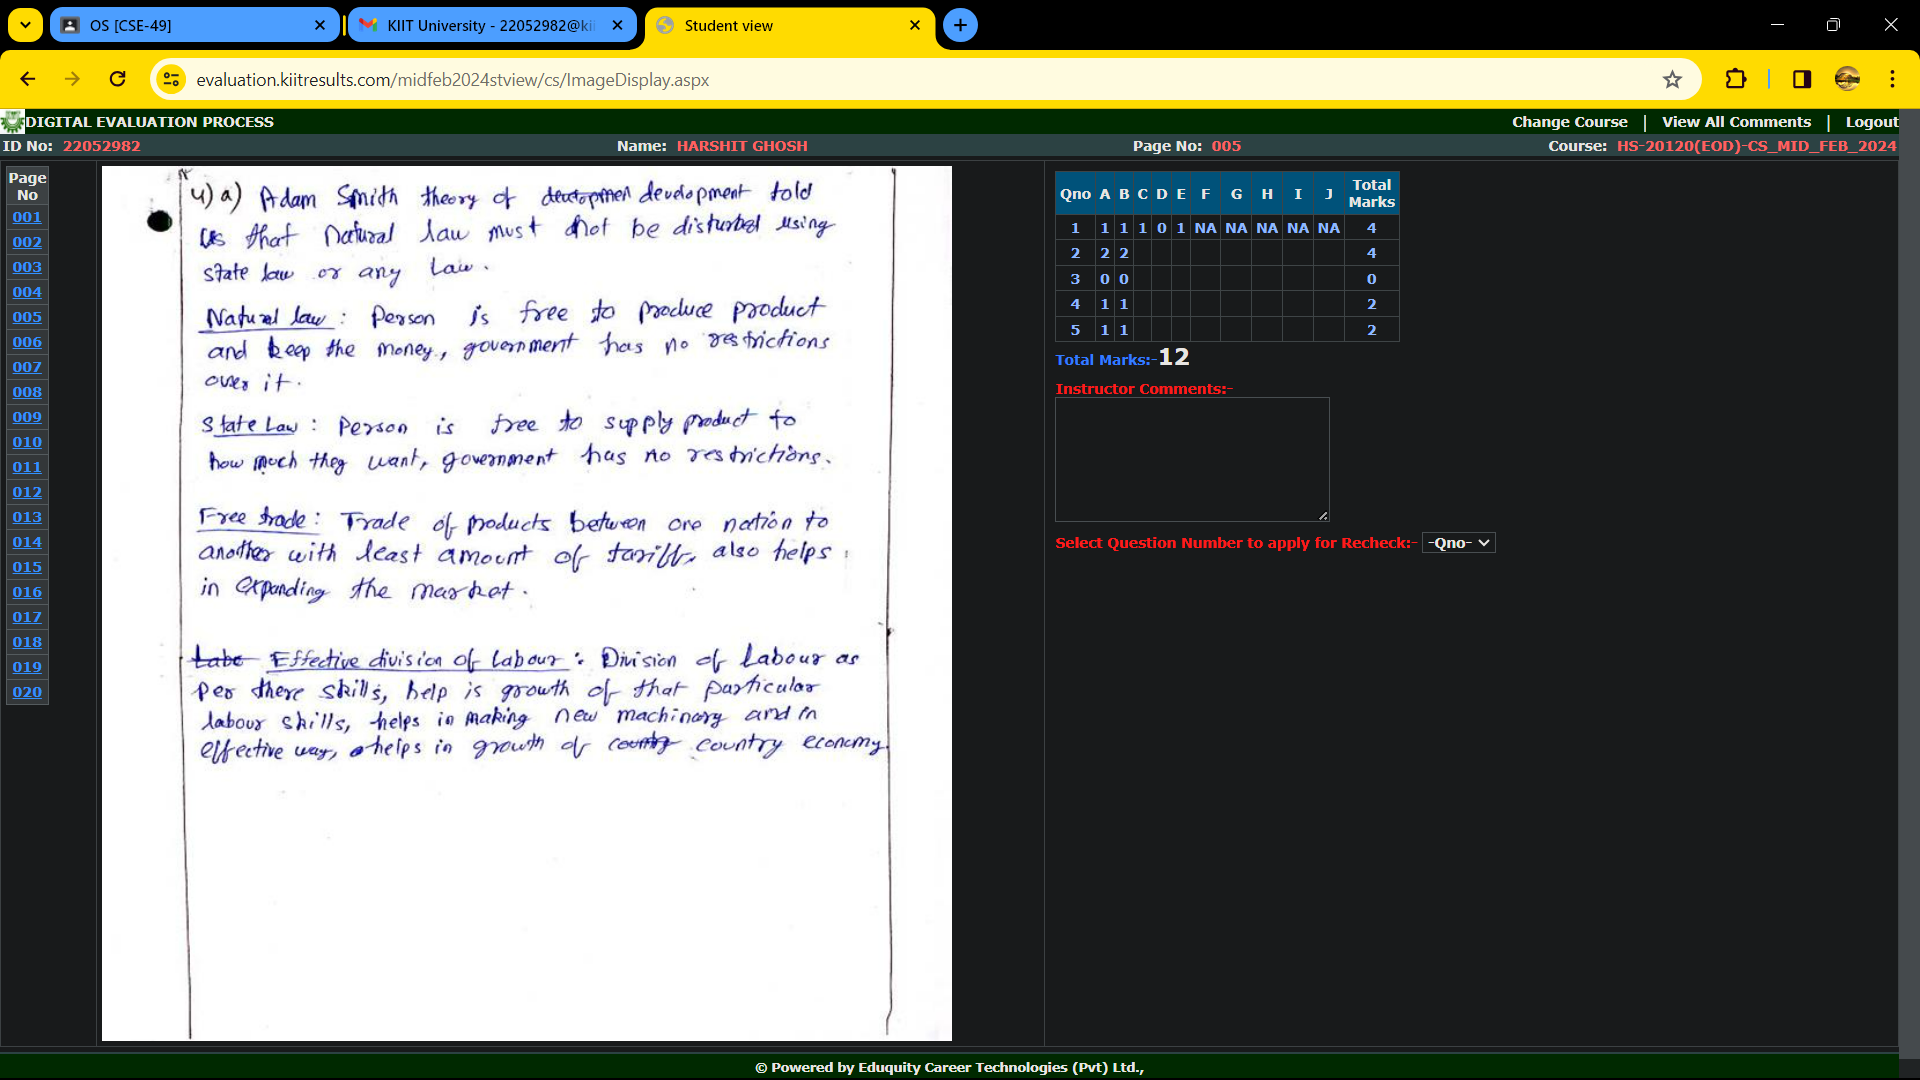 OS [CSE-49]
KIIT University - 22052982@kii
Student view
evaluation.kiitresults.com/midfeb2024stview/cs/ImageDisplay.aspx
DIGITAL EVALUATION PROCESS
Change Course | View All Comments | Logout
ID No: 22052982
Name: HARSHIT GHOSH
Page No: 005
Course: HS-20120(EOD)-CS_MID_FEB_2024
Page No
001
002
003
004
005
006
007
008
009
010
011
012
013
014
015
016
017
018
019
020
4) a) Adam Smith theory of development told
us that natural law must not be disturbed using
state law or any law.
Natural law : Person is free to produce product
and keep the money, government has no restrictions
over it.
State Law : Person is free to supply product to
how much they want, government has no restrictions.
Free trade : Trade of products between one nation to
another with least amount of tariff, also helps
in expanding the market.
Labo Effective division of Labour : Division of Labour as
per there skills, help is growth of that particular
labour skills, helps in making new machinary and in
effective way, helps in growth of country economy.
Qno A B C D E F G H I J Total Marks
1 1 1 1 0 1 NA NA NA NA NA 4
2 2 2 4
3 0 0 0
4 1 1 2
5 1 1 2
Total Marks:-12
Instructor Comments:-
Select Question Number to apply for Recheck:- -Qno-
© Powered by Eduquity Career Technologies (Pvt) Ltd.,